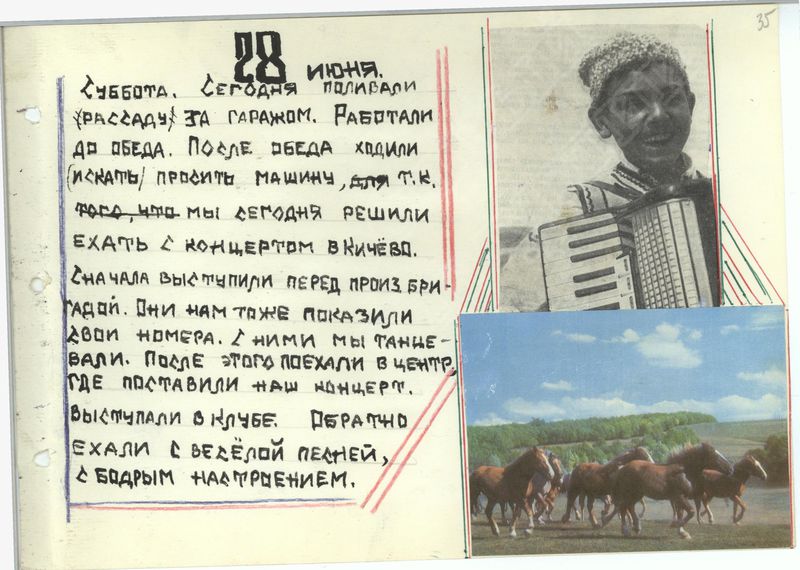 35
28 июня.
Суббота. Сегодня поливали
(рассаду) за гаражом. Работали
до обеда. После обеда ходили
(искать) просить машину, для т.к.
того, что мы сегодня решили
ехать с концертом в Кичёво.
Сначала выступили перед произ. бри-
гадой. Они нам тоже показили
свои номера. С ними мы танце-
вали. После этого поехали в центр,
где поставили наш концерт.
Выступали в клубе. Обратно
ехали с весёлой песней,
с бодрым настроением.